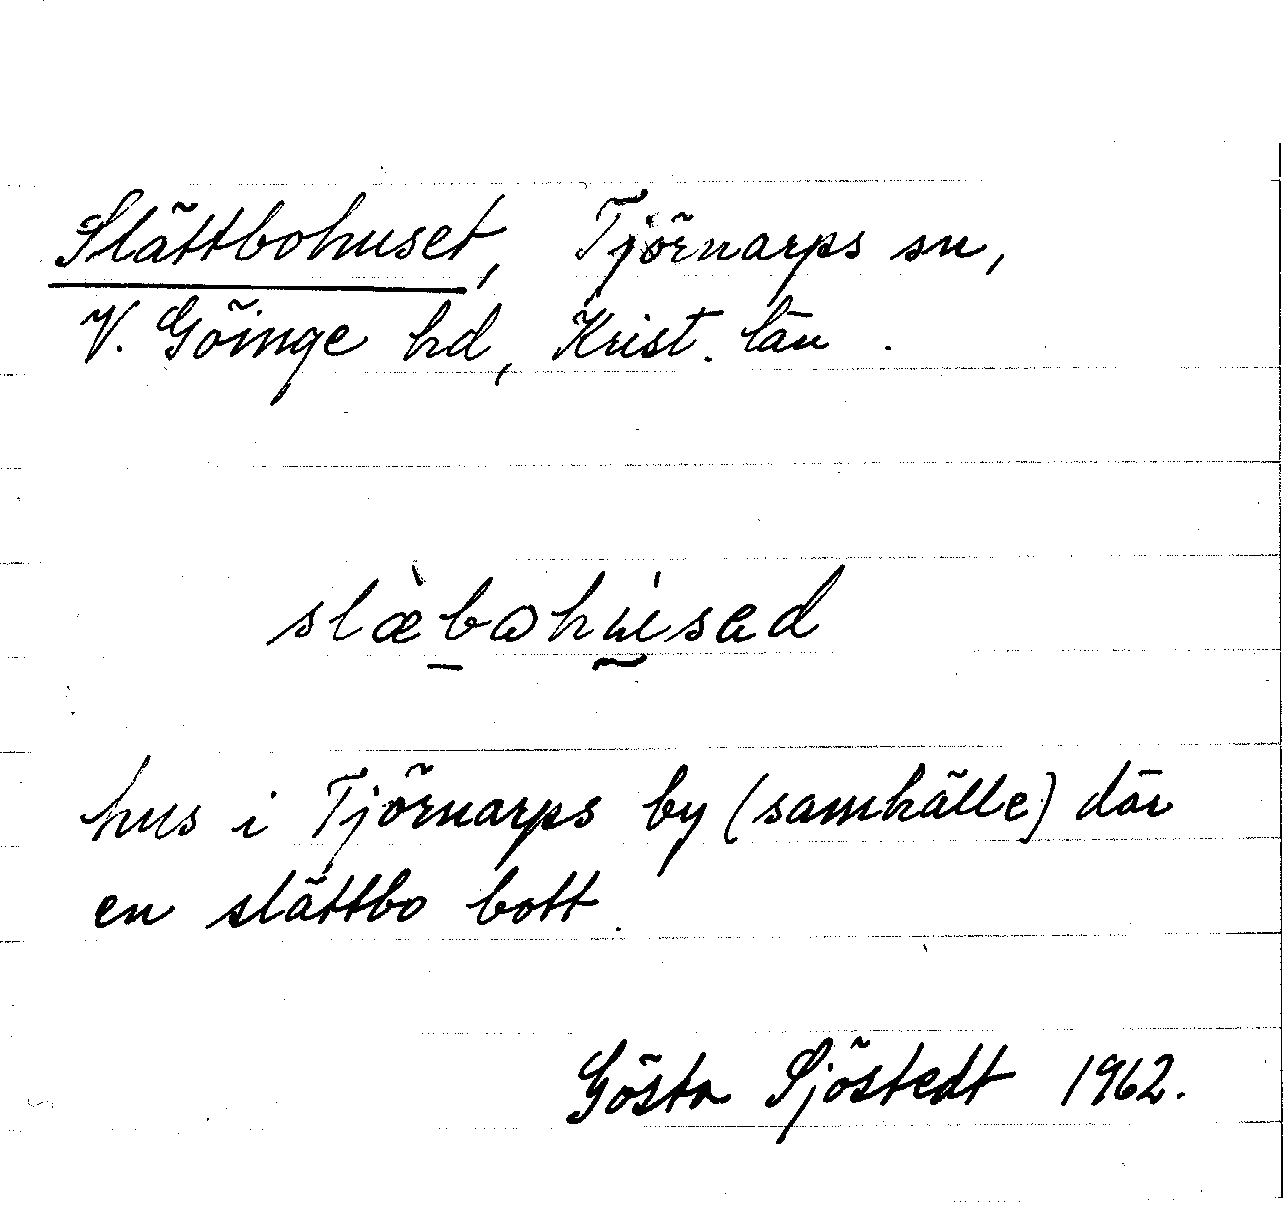 Slättbohuset, Tjörnarps sn,
V. Göinge hd, Krist. län.
slæ̀bohúsad
hus i Tjörnarps by (samhälle) där
en slättbo bott.
Gösta Sjöstedt 1962.